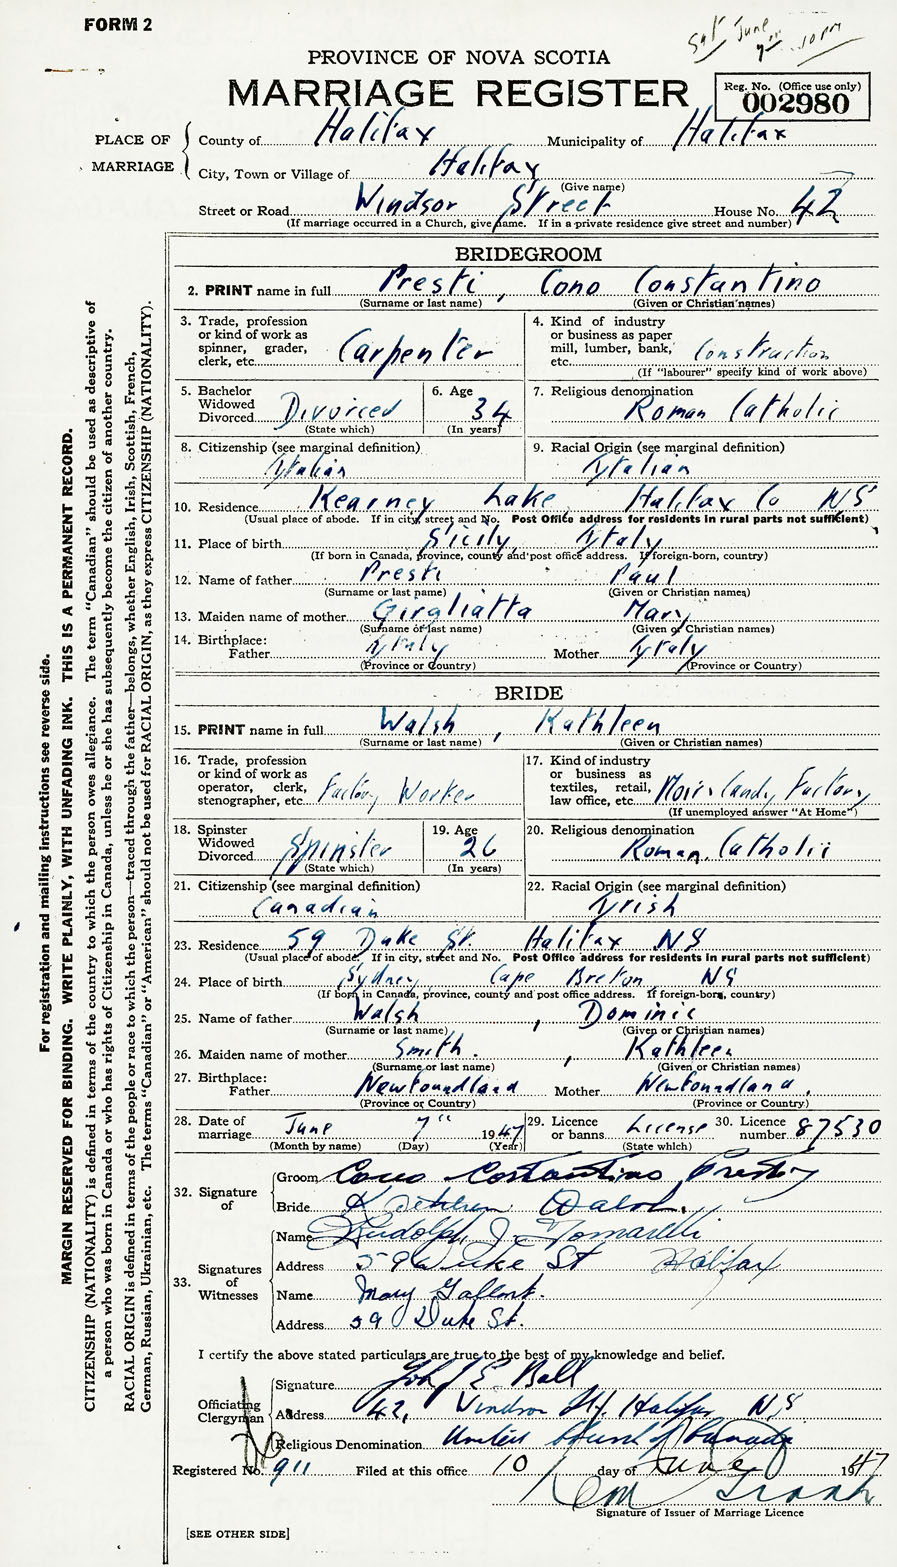 FORM 2
Sat June
7" 10 PM
PROVINCE OF NOVA SCOTIA
MARRIAGE REGISTER
Reg. No. (Office use only)
002980
PLACE OF MARRIAGE
County of Halifax Municipality of Halifax
City, Town or Village of Halifax
(Give name)
Street or Road Windsor Street House No. 42
(If marriage occurred in a Church, give name. If in a private residence give street and number)
BRIDEGROOM
2. PRINT name in full Presti, Cono Constantino
(Surname or last name) (Given or Christian names)
3. Trade, profession or kind of work as spinner, grader, clerk, etc. Carpenter
4. Kind of industry or business as paper mill, lumber, bank, etc. Construction
(If "labourer" specify kind of work above)
5. Bachelor Widowed Divorced Divorced
(State which)
6. Age 34
(In years)
7. Religious denomination
Roman Catholic
8. Citizenship (see marginal definition)
Italian
9. Racial Origin (see marginal definition)
Italian
10. Residence Kearney Lake, Halifax Co NS
(Usual place of abode. If in city, street and No. Post Office address for residents in rural parts not sufficient)
11. Place of birth Sicily, Italy
(If born in Canada, province, county and post office address. If foreign-born, country)
12. Name of father Presti Paul
(Surname or last name) (Given or Christian names)
13. Maiden name of mother Girgliatta Mary
(Surname or last name) (Given or Christian names)
14. Birthplace:
Father Italy Mother Italy
(Province or Country) (Province or Country)
BRIDE
15. PRINT name in full Walsh, Kathleen
(Surname or last name) (Given or Christian names)
16. Trade, profession or kind of work as operator, clerk, stenographer, etc. Factory Worker
17. Kind of industry or business as textiles, retail, law office, etc. Moirs Candy Factory
(If unemployed answer "At Home")
18. Spinster Widowed Divorced Spinster
(State which)
19. Age 26
(In years)
20. Religious denomination
Roman Catholic
21. Citizenship (see marginal definition)
Canadian
22. Racial Origin (see marginal definition)
Irish
23. Residence 59 Duke St. Halifax NS
(Usual place of abode. If in city, street and No. Post Office address for residents in rural parts not sufficient)
24. Place of birth Sydney, Cape Breton, NS
(If born in Canada, province, county and post office address. If foreign-born, country)
25. Name of father Walsh, Dominic
(Surname or last name) (Given or Christian names)
26. Maiden name of mother Smith, Kathleen
(Surname or last name) (Given or Christian names)
27. Birthplace:
Father Newfoundland Mother Newfoundland
(Province or Country) (Province or Country)
28. Date of marriage June 7" 1947
(Month by name) (Day) (Year)
29. Licence or banns License
(State which)
30. Licence number 87530
32. Signature of
Groom Cono Costantino Presti
Bride Kathleen Walsh
33. Signatures of Witnesses
Name Rudolph J. Tomarelli
Address 59 Duke St Halifax
Name Mary Gallant.
Address 59 Duke St.
I certify the above stated particulars are true to the best of my knowledge and belief.
Officiating Clergyman
Signature John E Ball
Address 42, Windsor St. Halifax N.S
Religious Denomination United Church of Canada
Registered No. 911 Filed at this office 10 day of June 1947
Signature of Issuer of Marriage Licence
[SEE OTHER SIDE]
For registration and mailing instructions see reverse side.
MARGIN RESERVED FOR BINDING. WRITE PLAINLY, WITH UNFADING INK. THIS IS A PERMANENT RECORD.
CITIZENSHIP (NATIONALITY) is defined in terms of the country to which the person owes allegiance. The term "Canadian" should be used as descriptive of
a person who was born in Canada or who has rights of Citizenship in Canada, unless he or she has subsequently become the citizen of another country.
RACIAL ORIGIN is defined in terms of the people or race to which the person—traced through the father—belongs, whether English, Irish, Scottish, French,
German, Russian, Ukrainian, etc. The terms "Canadian" or "American" should not be used for RACIAL ORIGIN, as they express CITIZENSHIP (NATIONALITY).